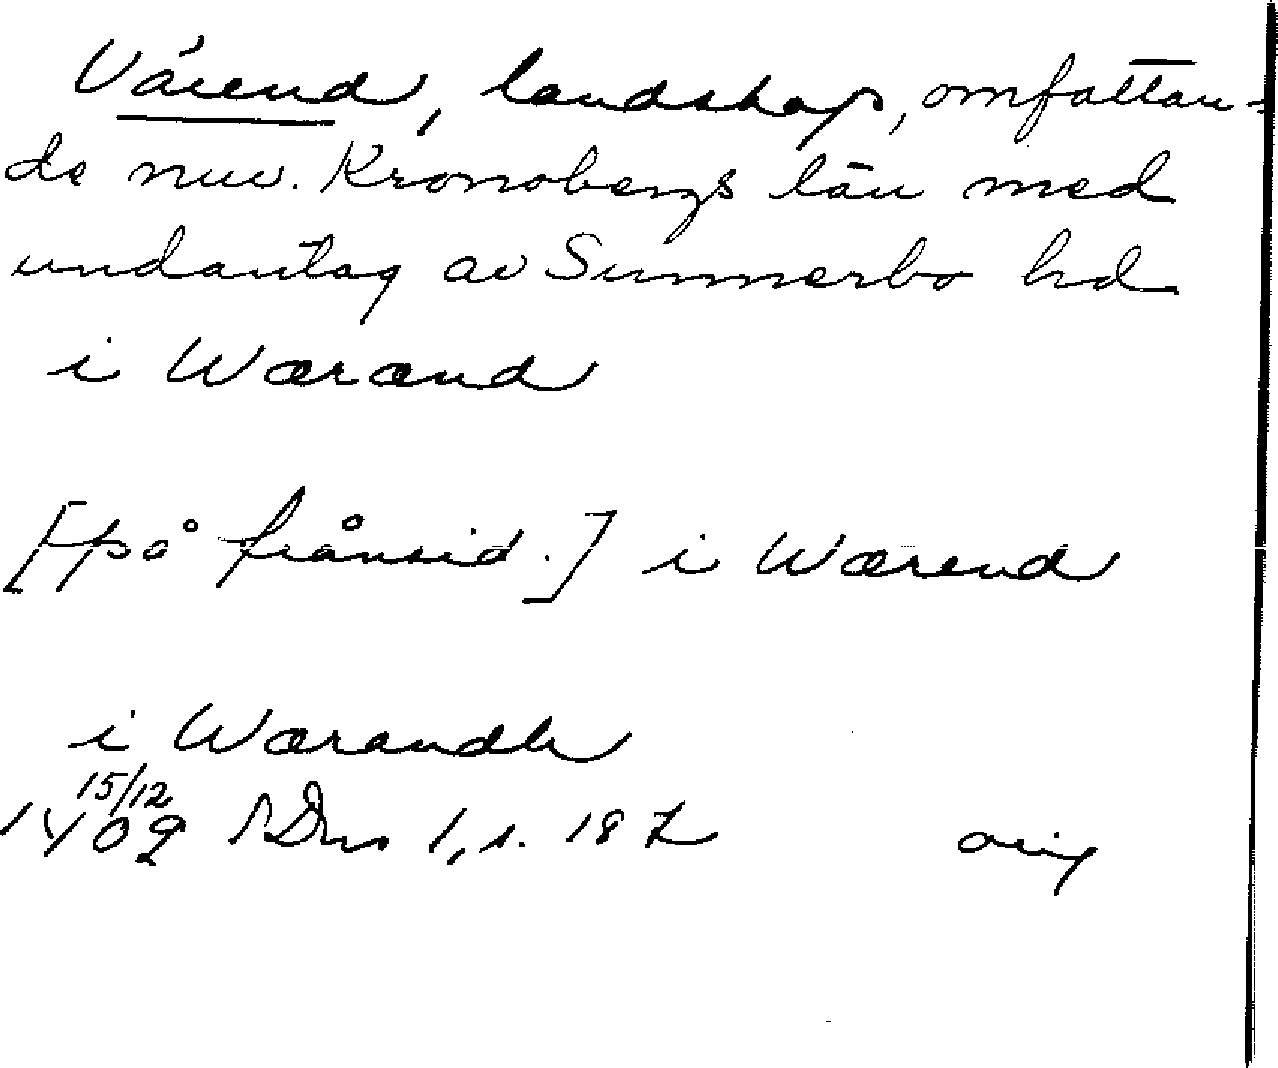 Värend, landskap, omfattan-
de nuv. Kronobergs län med
undantag av Sunnerbo hd
i Wærænd
[på frånsid.] i Wærend
i Wærandh
15/12
1409 SDns 1, s. 187 orig